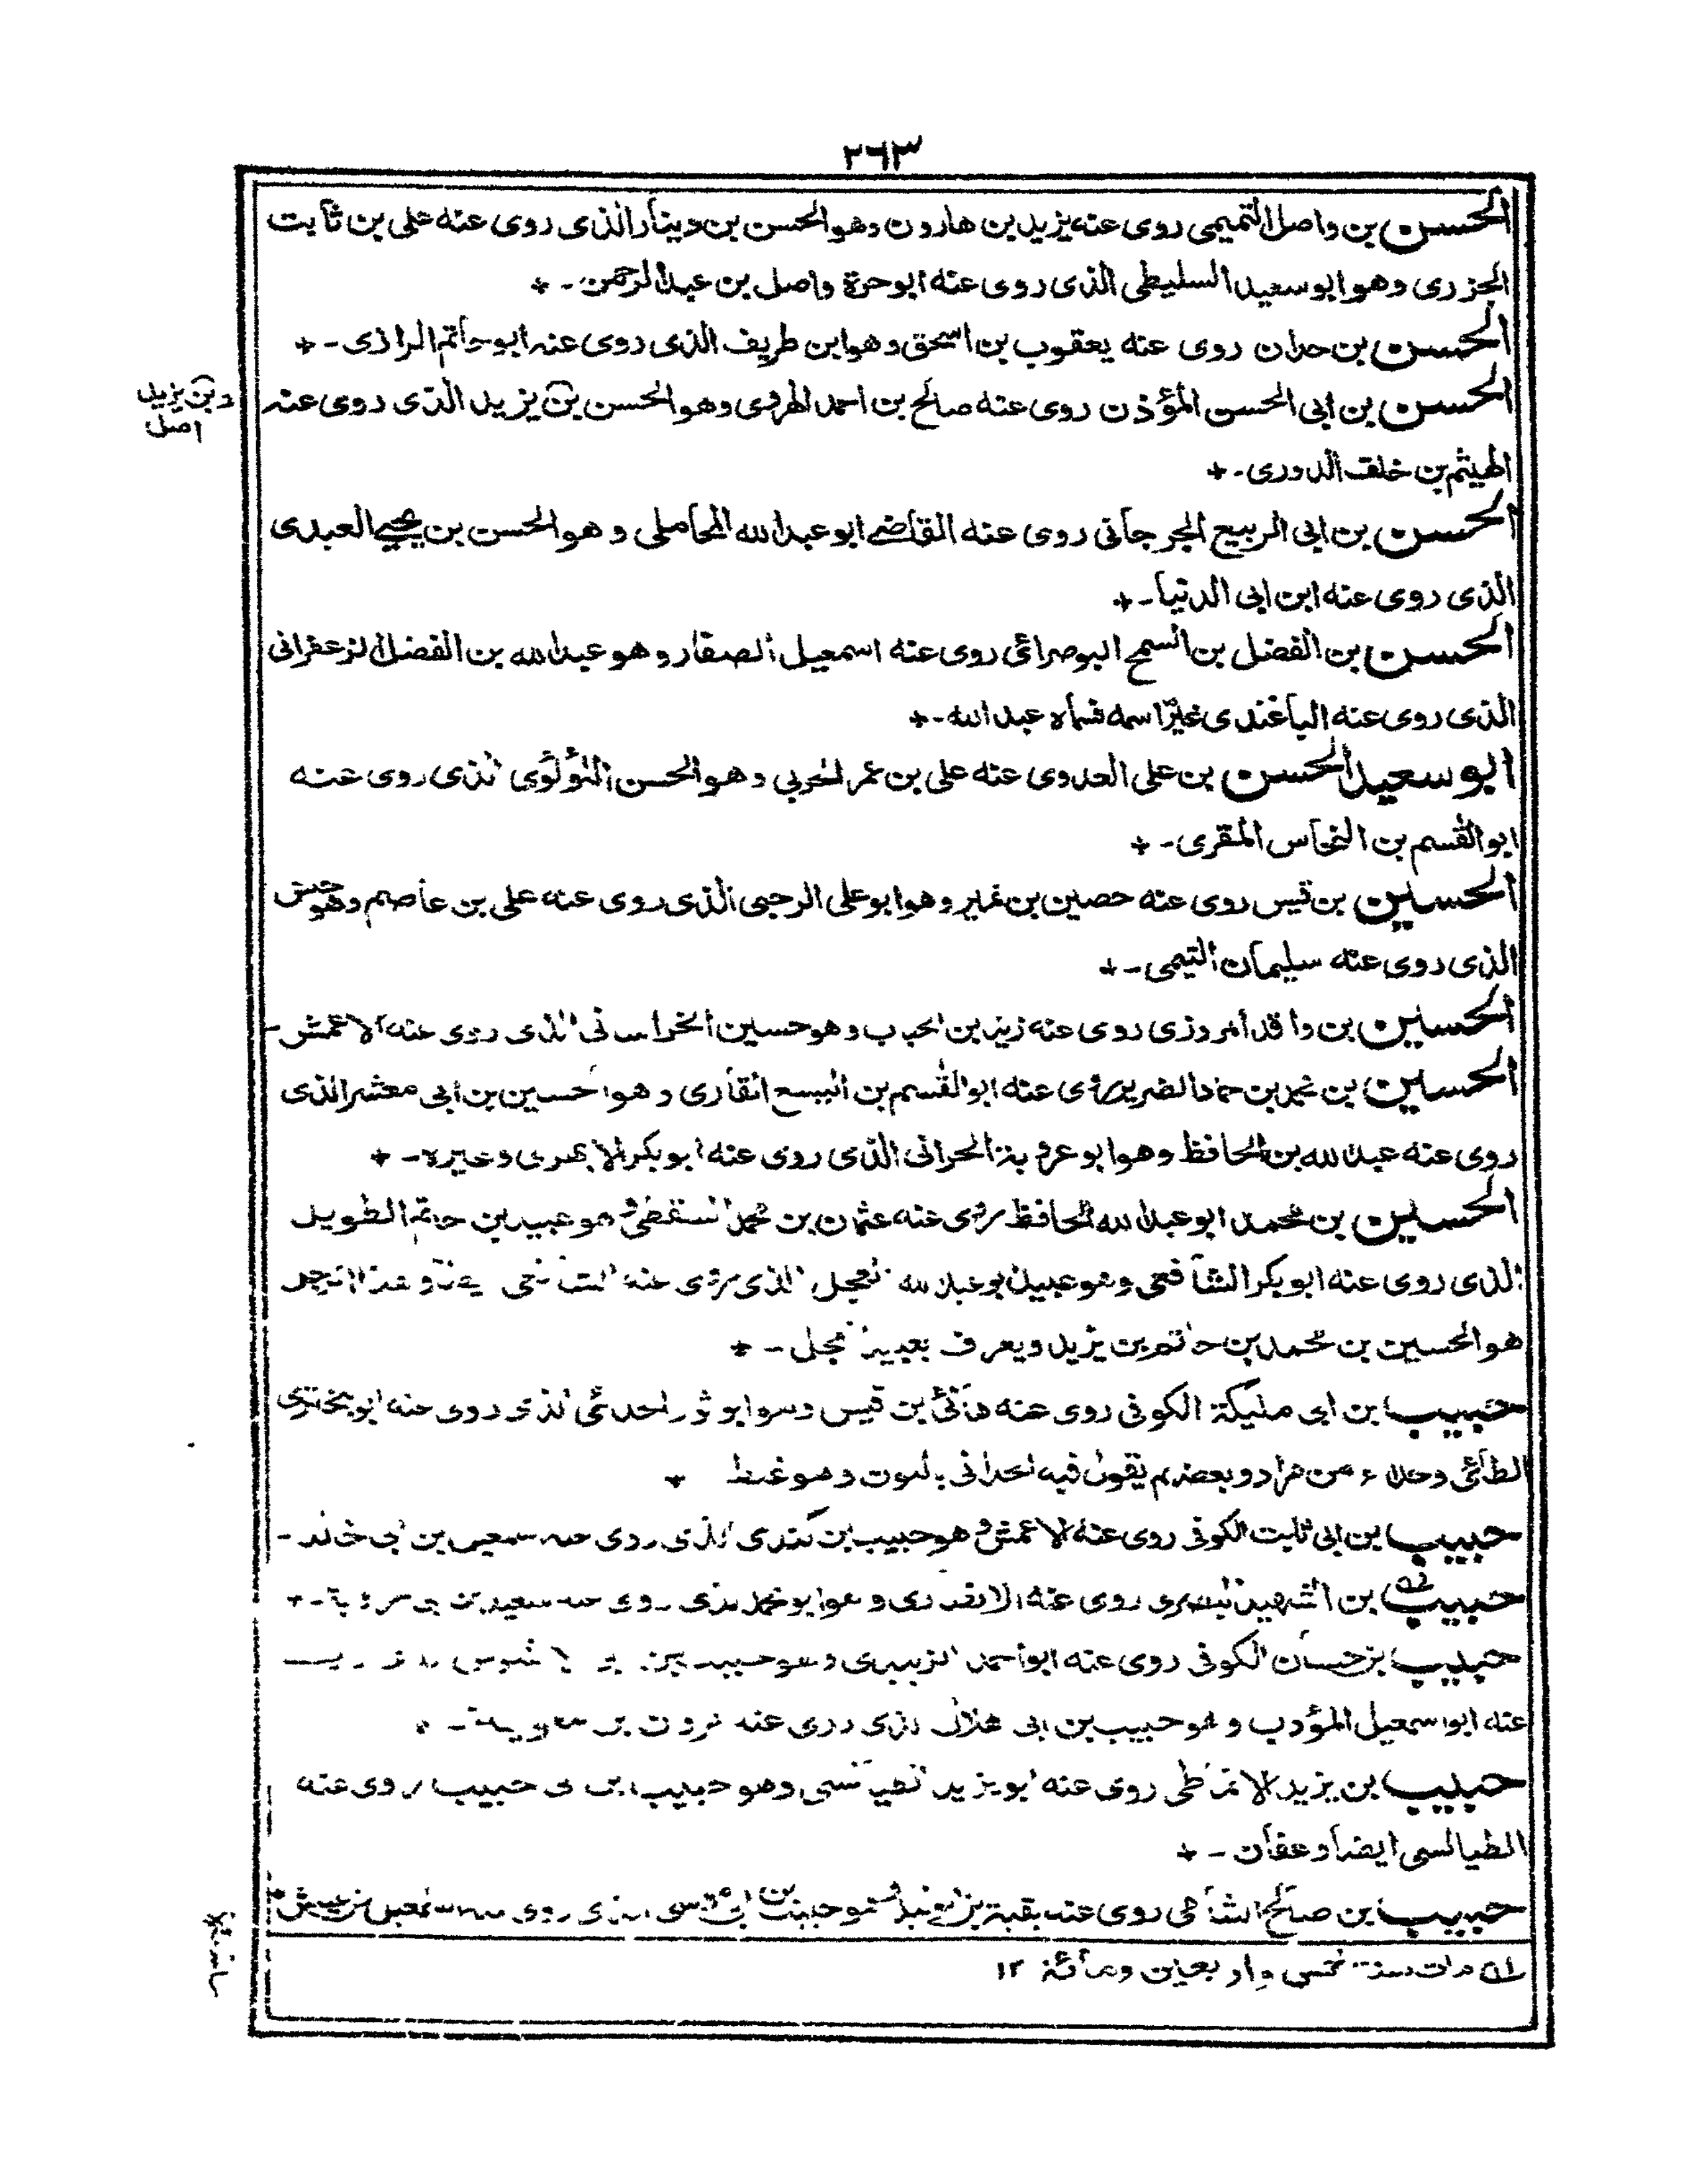 ٢٦٣
الحسن بن واصل التميمي روى عنه يزيد بن هارون وهو الحسن بن دينار الذى روى عنه على بن ثابت
الجزرى وهو ابو سعيد السليطى الذى روى عنه ابو حرة واصل بن عبد الرحمن -
الحسن بن حدان روى عنه يعقوب بن اسحق وهو ابن طريف الذى روى عنه ابو حاتم الرازى -
الحسن بن ابى الحسن المؤذن روى عنه صالح بن احمد الهروى وهو الحسن بن يزيد الذى روى عنه
و بن يزيد
اصل
الهيثم بن خلف الدورى -
الحسن بن ابى الربيع الجرجانى روى عنه القاضى ابو عبد الله المحاملى وهو الحسن بن يحيى العبدى
الذى روى عنه ابن ابى الدنيا -
الحسن بن الفضل بن السمح البوصرائى روى عنه اسمعيل الصفار وهو عبد الله بن الفضل الزعفرانى
الذى روى عنه الباغندى غير اسمه فسماه عبد الله -
ابو سعيد الحسن بن على العدوى عنه على بن عمر الحربى وهو الحسن اللؤلؤى الذى روى عنه
ابو القسم بن النخاس المقرى -
الحسين بن قيس روى عنه حصين بن نمير وهو ابو على الرحبى الذى روى عنه على بن عاصم وهو حنش
الذى روى عنه سليمان التيمى -
الحسين بن واقد المروزى روى عنه زيد بن الحباب وهو حسين الخراسانى الذى روى عنه الاعمش -
الحسين بن حماد الضرير روى عنه ابو القسم بن اليسع القارى وهو الحسين بن ابى معشر الذى
روى عنه عبد الله بن الحافظ وهو ابو عروبة الحرانى الذى روى عنه ابو بكر الابهرى وغيره -
الحسين بن محمد ابو عبد الله الحافظ روى عنه عثمان بن محمد السقطى وهو عبيد بن حاتم الطويل
الذى روى عنه ابو بكر الشافعى وهو عبيد ابو عبد الله العجل الذى روى عنه الشافعى وهذا الرجل
هو الحسين بن محمد بن حاتم بن يزيد ويعرف بعبيد العجل -
حبيب بن ابى مليكة الكوفى روى عنه هانئ بن قيس وهو ابو ثور الحدائى الذى روى عنه ابو البخترى
الطائى وحداء من مراد وبعضهم يقول فيه الحدانى بالنون وهو غلط
حبيب بن ابى ثابت الكوفى روى عنه الاعمش وهو حبيب بن الذى روى عنه اسمعيل بن ابى خالد -
حبيب بن الشهيد البصرى روى عنه الانصارى وهو ابو محمد الذى روى عنه سعيد بن ابى عروبة -
حبيب بن حسان الكوفى روى عنه ابو احمد الزبيرى وهو حبيب بن ابى الاشرس الذى
عنه ابو اسمعيل المؤدب وهو حبيب بن ابى هلال الذى روى عنه مروان بن معاوية -
حبيب بن يزيد الانماطى روى عنه ابو يزيد الطيالسى وهو حبيب بن ابى حبيب روى عنه
الطيالسى ايضا وعفان -
حبيب بن صالح الشامى روى عنه بقية بن الوليد وهو حبيب بن ابى موسى الذى روى عنه اسمعيل بن عياش
مات سنة خمس واربعين ومائة ١٢